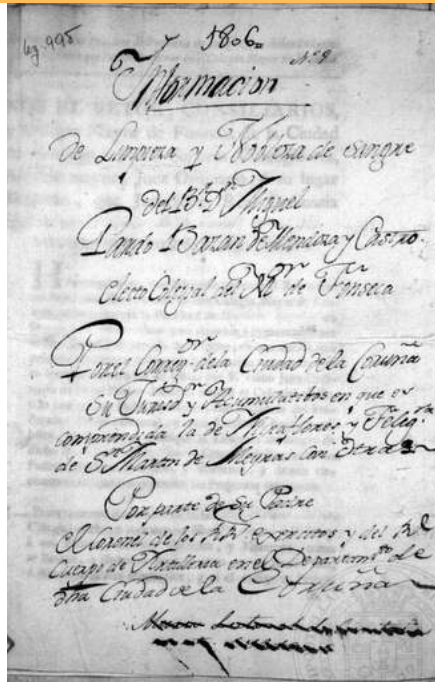 leg. 995
1806
Nº 8
Informacion
de Limpieza y Nobleza de sangre
del Bʳ Dⁿ Miguel
Pardo Bazan de Mendoza y Castro
electo Colegial del Mʳ de Fonseca
Por el Corregᵒʳ de la Ciudad de la Coruña
Su Jurisdⁿ y Acumulativos en que es
comprendida la de Miraflores y Feligˢⁱᵃ
de Sⁿ Martin de Meyras con otras
Por parte de Su Padre
el Coronel de los Rˢ Exercitos y del Rˡ
Cuerpo de Artilleria en el Departamᵗᵒ de
dha Ciudad de la Coruña